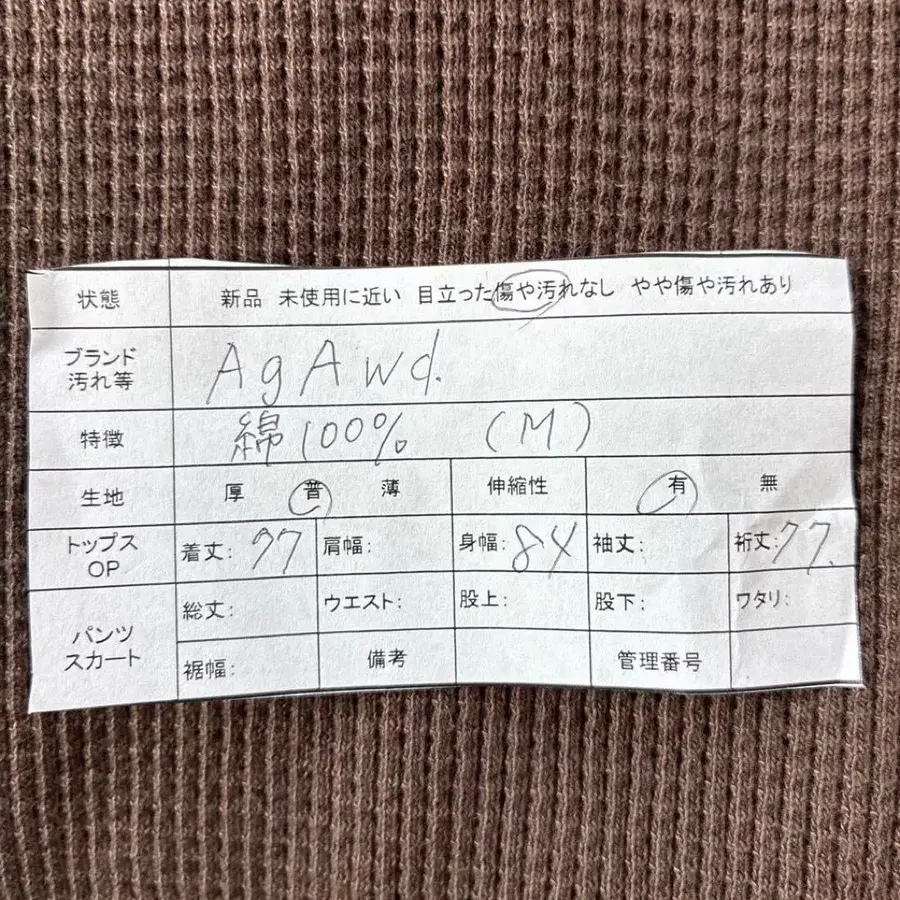 状態 新品 未使用に近い 目立った傷や汚れなし やや傷や汚れあり
ブランド
汚れ等
AgAwd.
特徴 綿100% (M)
生地 厚 普 薄 伸縮性 有 無
トップス
OP
着丈: 77 肩幅: 身幅: 84 袖丈: 裄丈: 77.
パンツ
スカート
総丈: ウエスト: 股上: 股下: ワタリ:
裾幅: 備考 管理番号